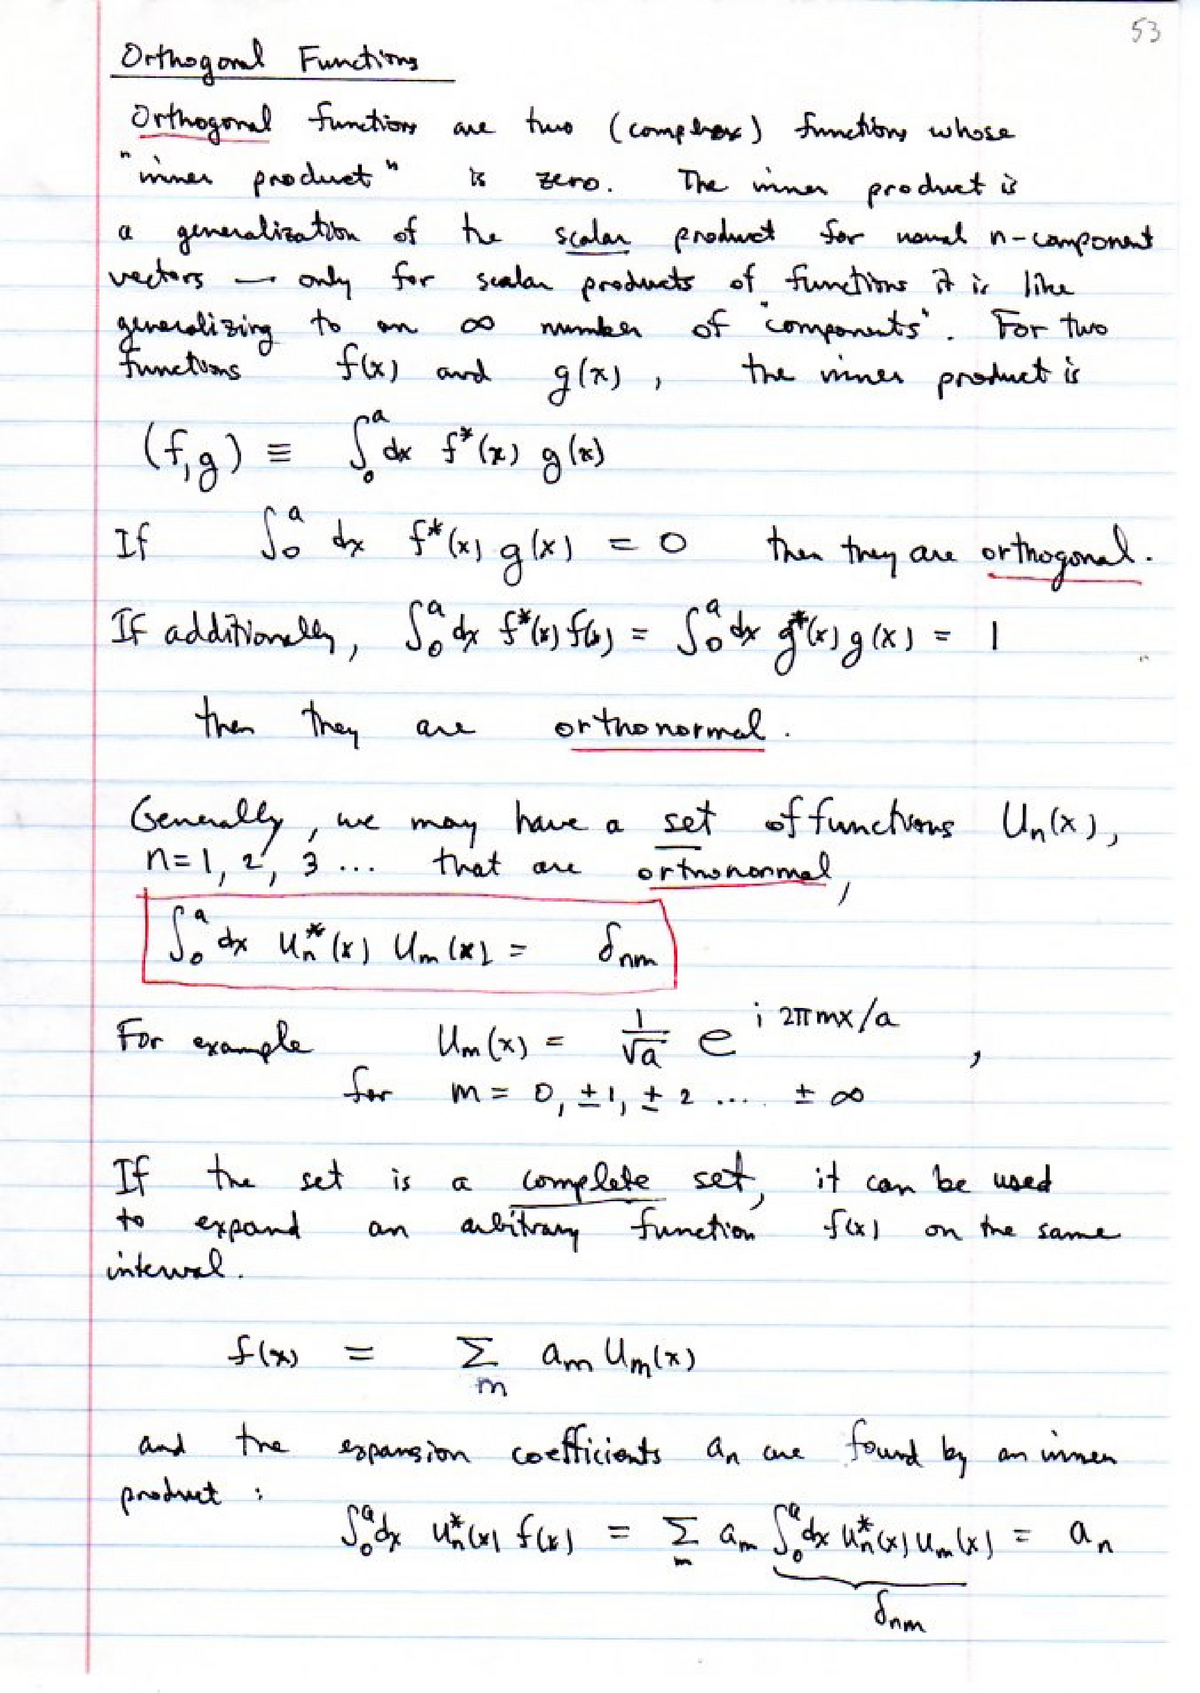 53
Orthogonal Functions
Orthogonal functions are two (complex) functions whose
"inner product" is zero. The inner product is
a generalization of the scalar product for normal n-component
vectors — only for scalar products of functions it is like
generalizing to an ∞ number of "components". For two
functions f(x) and g(x), the inner product is
(f,g) ≡ ∫₀ᵃ dx f*(x) g(x)
If ∫₀ᵃ dx f*(x) g(x) = 0 then they are orthogonal.
If additionally, ∫₀ᵃ dx f*(x) f(x) = ∫₀ᵃ dx g*(x) g(x) = 1
then they are orthonormal.
Generally, we may have a set of functions Uₙ(x),
n=1, 2, 3 ... that are orthonormal,
∫₀ᵃ dx Uₙ*(x) Uₘ(x) = δₙₘ
For example Uₘ(x) = 1/√a e^{i 2πmx/a},
for m = 0, ±1, ±2 .... ±∞
If the set is a complete set, it can be used
to expand an arbitrary function f(x) on the same
interval.
f(x) = Σₘ aₘ Uₘ(x)
and the expansion coefficients aₙ are found by an inner
product :
∫₀ᵃ dx Uₙ*(x) f(x) = Σₘ aₘ ∫₀ᵃ dx Uₙ*(x) Uₘ(x) = aₙ
δₙₘ